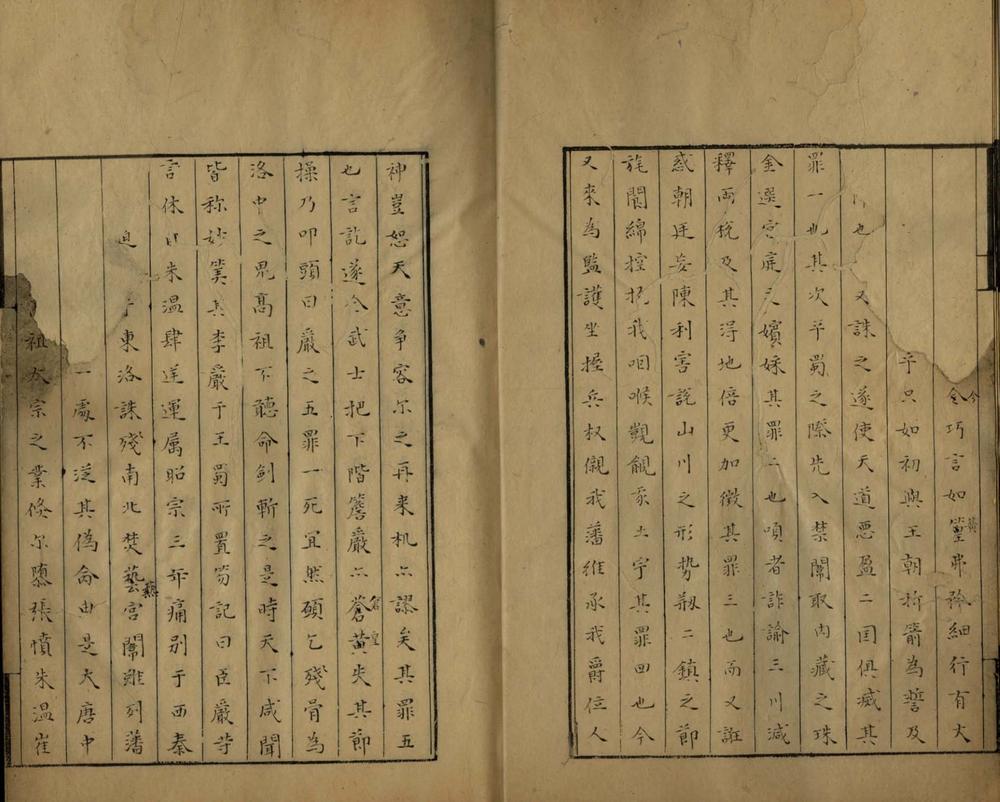 令巧言如篁弗矜細行有大
今
黃
乎只如初與王朝折箭為誓及
也又誅之遂使天道惡盈二国俱滅其
罪一也其次平蜀之際先入禁闈取内藏之珠
金選宮庭之嬪婇其罪二也頃者詐諭三川減
釋两稅及其得地倍更加徵其罪三也而又誑
惑朝廷妄陳利害說山川之形势剏二鎮之節
旄閬綿控扼我咽喉覬覦我土宇其罪四也今
又來為監護坐握兵权儭我藩維承我爵位人
神豈恕天意争容尔之再来机亦謬矣其罪五
也言訖遂令武士把下階簷嚴亦蒼黃失其節
倉皇
操乃叩頭曰嚴之五罪一死宜然碩乞殘骨為
洛中之鬼高祖不聽命剣斬之是時天下咸聞
皆称妙筭其李嚴于王蜀所置笏記曰臣嚴等
言休以朱温肆逆運属昭宗三郊痛别于西秦
東洛誅殘南北焚藝宮闈雖列藩
爇
一處不泛其偽命由是大唐中
祖太宗之業倏尔隳張憤朱温崔